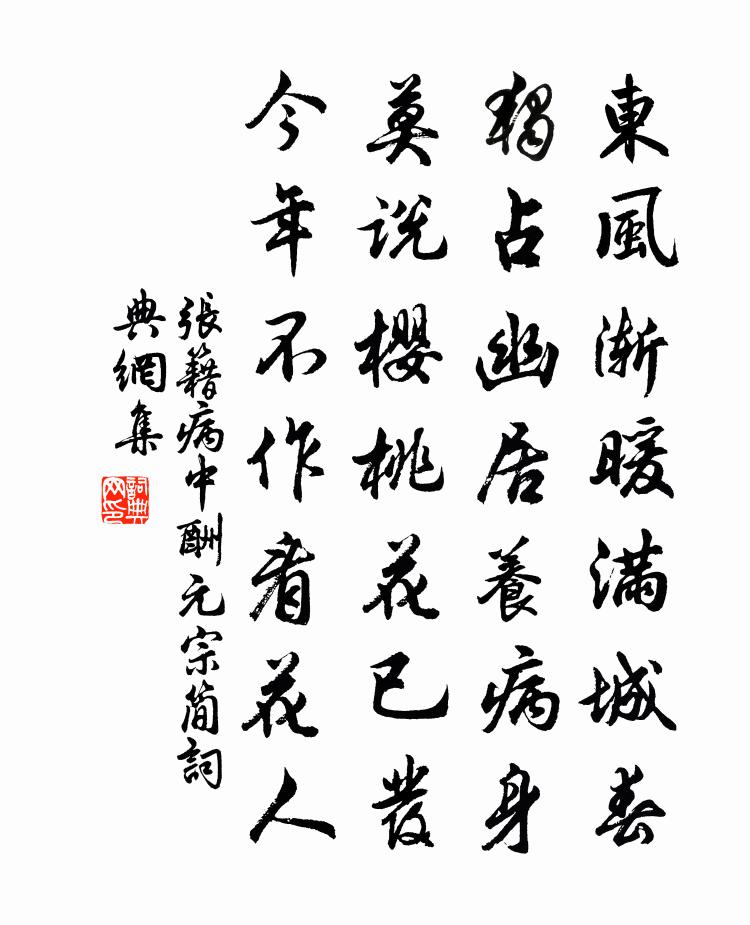 東風漸暖滿城春
獨占幽居養病身
莫說櫻桃花已發
今年不作看花人
張籍病中酬元宗簡詞
典網集
詞典
网印